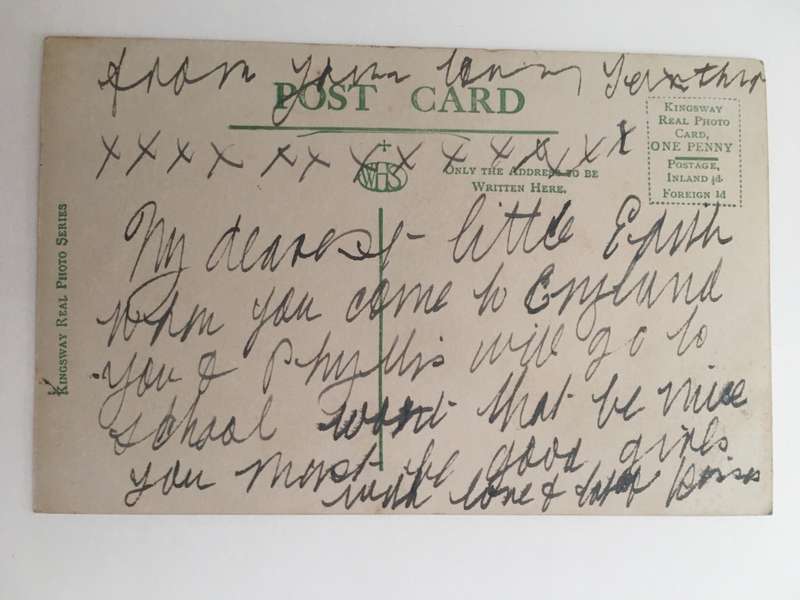 from your
POST CARD
x x x x x x x x x x x x x x
KINGSWAY
REAL PHOTO
CARD,
ONE PENNY
POSTAGE,
INLAND ½d.
FOREIGN 1d
WHS
ONLY THE ADDRESS TO BE
WRITTEN HERE.
KINGSWAY REAL PHOTO SERIES
My dearest little Edith
When you come to England
you & Phyllis will go to
school wont that be nice
you must be good girls
with love & Kisses